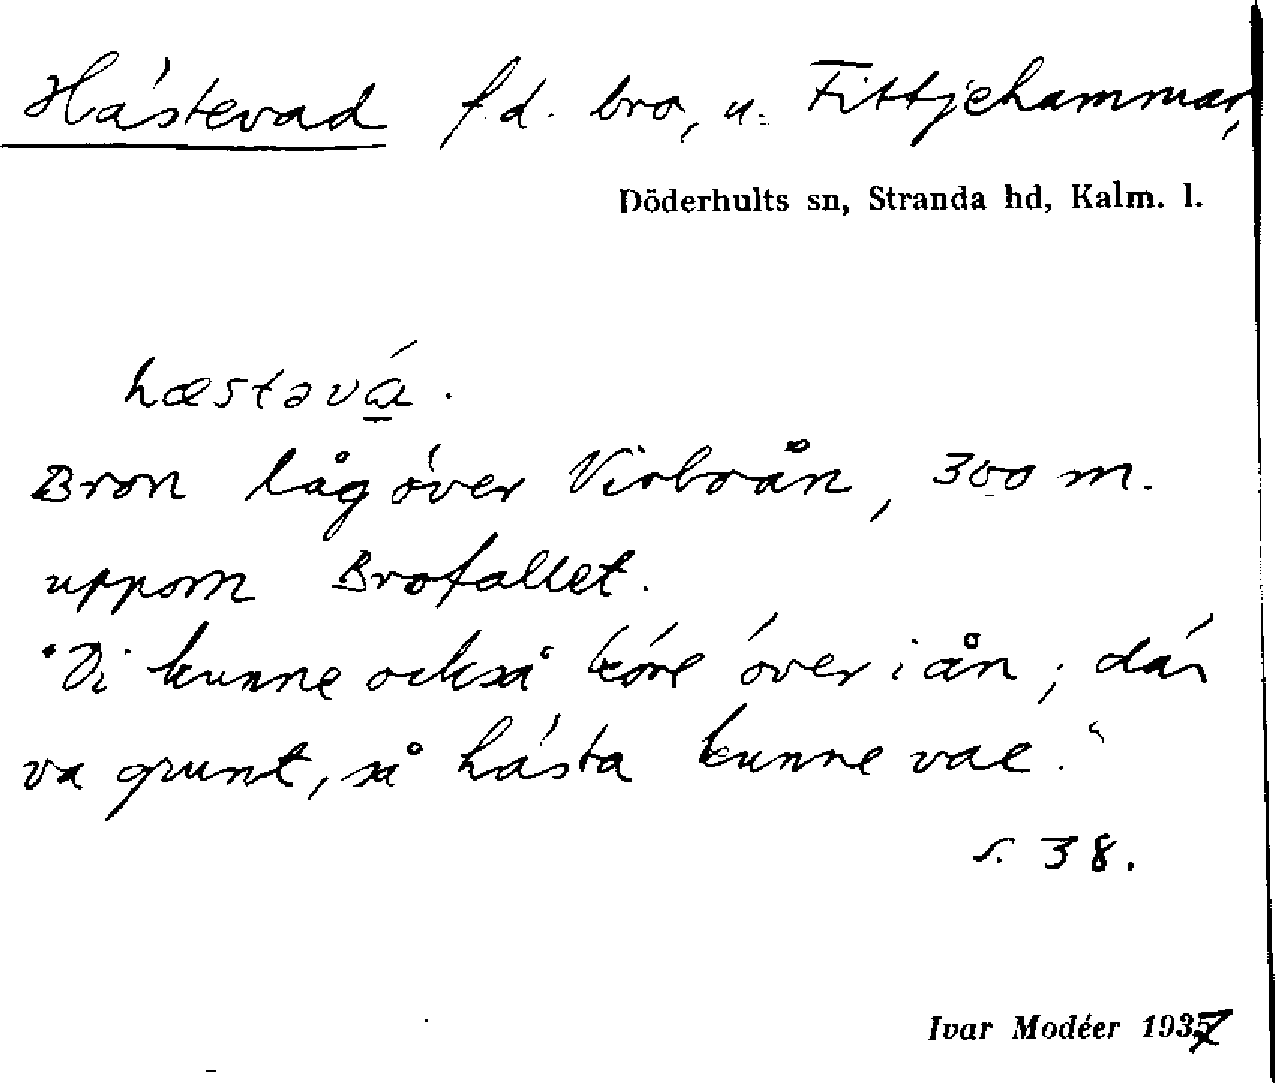 Hästevad f.d. bro, u. Fittjehammar,
Döderhults sn, Stranda hd, Kalm. l.
hæstəvá.
Bron låg över Virboån, 300 m.
uppom Brofallet.
"Di kunne också köre över i ån; där
va grunt, så hästa kunne vae."
s. 38.
Ivar Modéer 1937